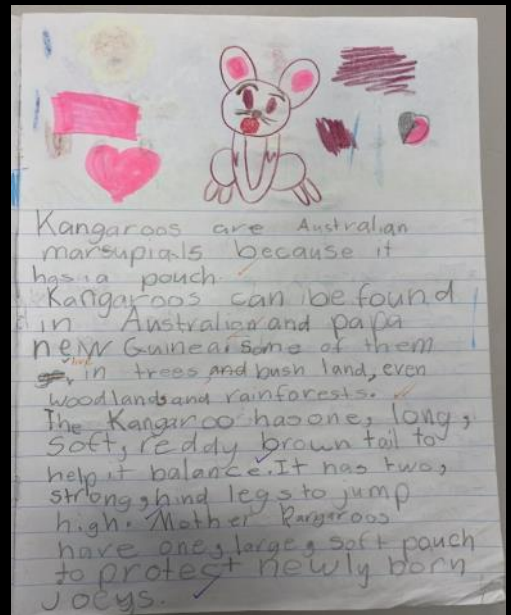 Kangaroos are Australian
marsupials because it
has a pouch.
Kangaroos can be found
in Australia and papa
new Guinea. Some of them
live in trees and bush land, even
woodlands and rainforests.
The Kangaroo has one, long,
soft, reddy brown tail to
help it balance. It has two,
strong, hind legs to jump
high. Mother Kangaroos
have one, large, soft pouch
to protest newly born
Joeys.